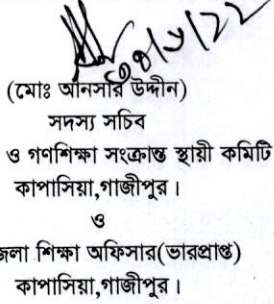 (মোঃ আনসার উদ্দীন)
সদস্য সচিব
ও গণশিক্ষা সংক্রান্ত স্থায়ী কমিটি
কাপাসিয়া,গাজীপুর।
ও
জলা শিক্ষা অফিসার(ভারপ্রাপ্ত)
কাপাসিয়া,গাজীপুর।